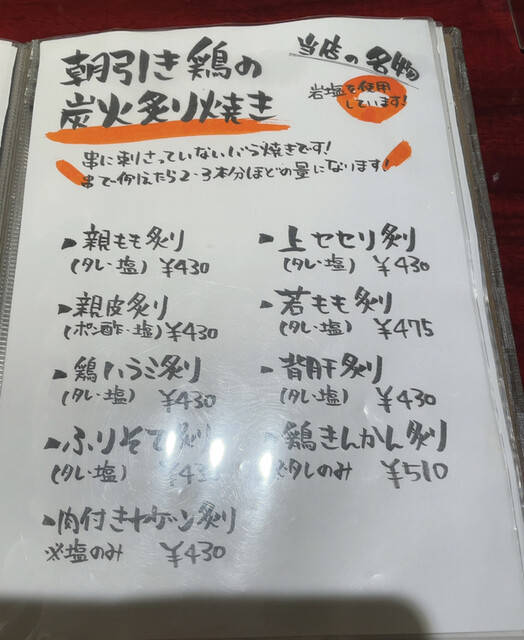 朝引き鶏の
炭火炙り焼き
当店の名物
岩塩を使用
しています!
串に刺さっていないバラ焼きです!
串で例えたら2~3本分ほどの量になります!
親もも炙り
(タレ・塩) ¥430
親皮炙り
(ポン酢・塩) ¥430
鶏ハラミ炙り
(タレ・塩) ¥430
ふりそで炙り
(タレ・塩) ¥430
肉付きヤゲン炙り
※塩のみ ¥430
上セセリ炙り
(タレ・塩) ¥430
若もも炙り
(タレ・塩) ¥475
背肝炙り
(タレ・塩) ¥430
鶏きんかん炙り
※タレのみ ¥510